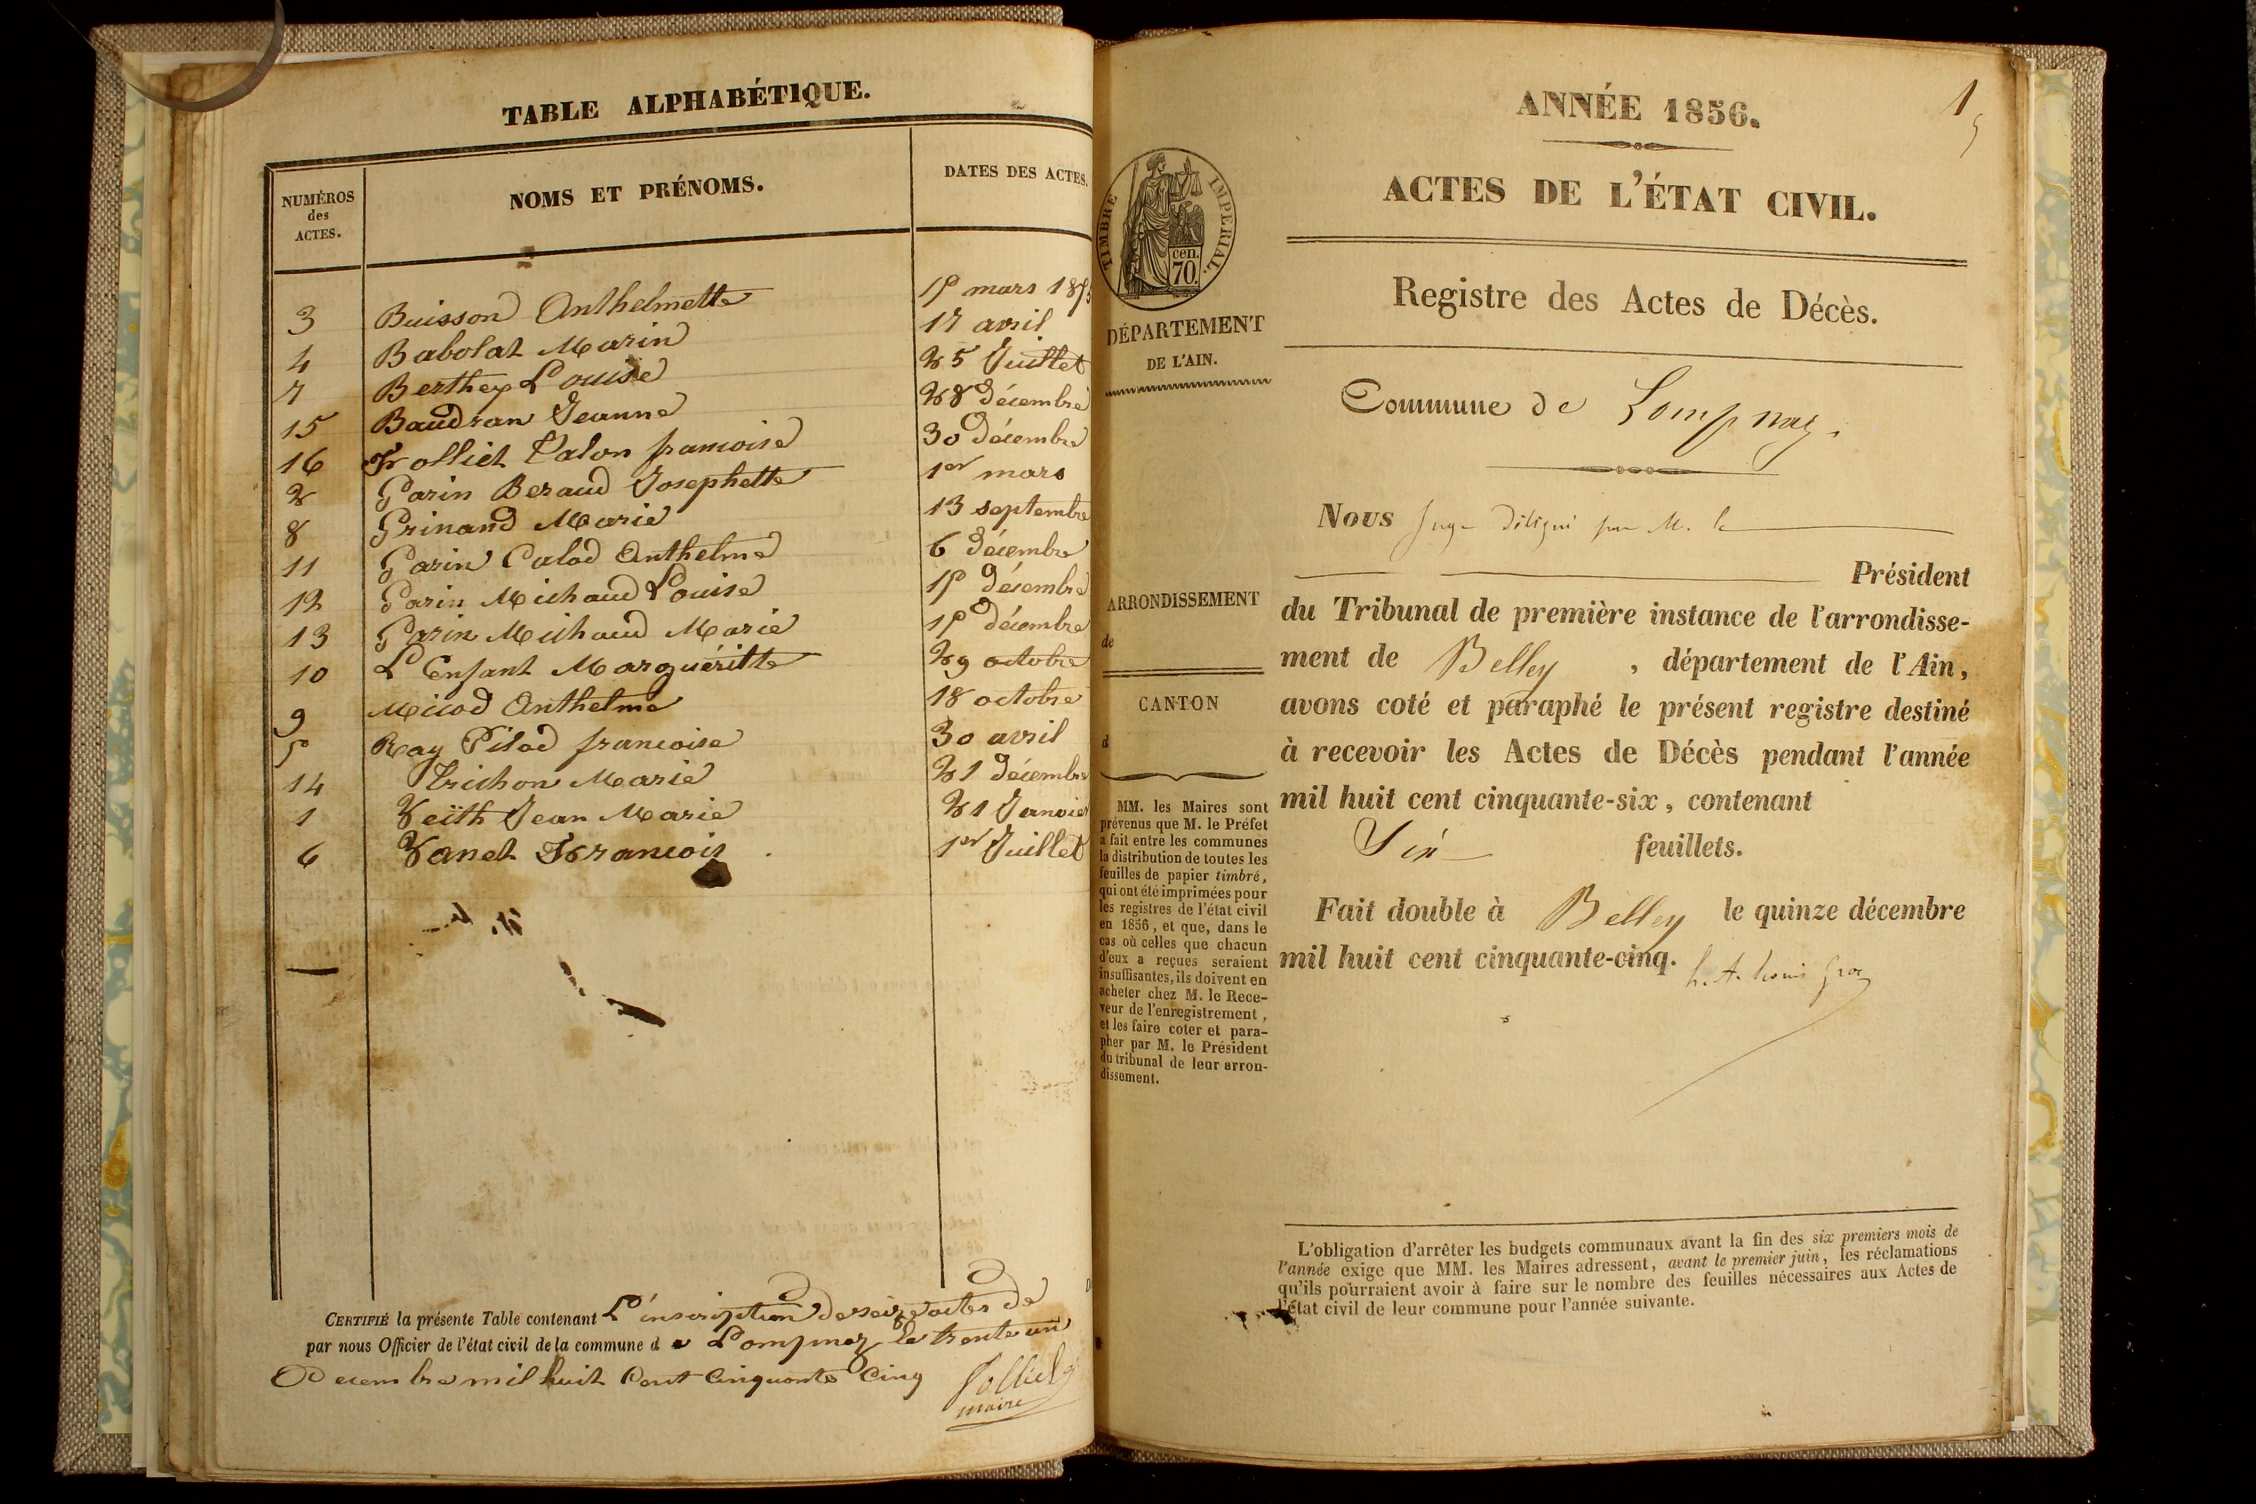 TABLE ALPHABÉTIQUE.
NUMÉROS des ACTES. NOMS ET PRÉNOMS. DATES DES ACTES.
3 Buisson Anthelmette 15 mars 185
4 Babolat Marin 17 avril
7 Berthey Louise 25 Juillet
15 Baudran Jeanne 28 décembre
16 Frolliet Talon francoise 30 décembre
2 Garin Beraud Josephette 1er mars
8 Grinand Marie 13 septembre
11 Garin Calod Anthelme 6 décembre
12 Garin Michaud Louise 15 décembre
13 Garin Michaud Marie 15 décembre
10 L'Enfant Marguéritte 29 octobre
9 Miiod Anthelme 18 octobre
5 Ray Pilod francoise 30 avril
14 Trichon Marie 21 décembre
1 Veith Jean Marie 21 Janvier
6 Vanet Francois 1er Juillet
CERTIFIÉ la présente Table contenant L'inscription de seize actes de
par nous Officier de l'état civil de la commune de Lompnaz le trente un
Decembre mil huit Cent Cinquante Cinq
maire
ANNÉE 1856.
1
ACTES DE L'ÉTAT CIVIL.
Registre des Actes de Décès.
TIMBRE IMPERIAL.
cen.
70.
DÉPARTEMENT
DE L'AIN.
Commune de Lompnaz.
Nous Juge délégué par M. le
Président
du Tribunal de première instance de l'arrondisse-
ment de Belley, département de l'Ain,
avons coté et paraphé le présent registre destiné
à recevoir les Actes de Décès pendant l'année
mil huit cent cinquante-six, contenant
Six feuillets.
Fait double à Belley le quinze décembre
mil huit cent cinquante-cinq.
ARRONDISSEMENT
de
CANTON
d
MM. les Maires sont
prévenus que M. le Préfet
a fait entre les communes
la distribution de toutes les
feuilles de papier timbré,
qui ont été imprimées pour
les registres de l'état civil
en 1856, et que, dans le
cas où celles que chacun
d'eux a reçues seraient
insuffisantes, ils doivent en
acheter chez M. le Rece-
veur de l'enregistrement,
et les faire coter et para-
pher par M. le Président
du tribunal de leur arron-
dissement.
L'obligation d'arrêter les budgets communaux avant la fin des six premiers mois de
l'année exige que MM. les Maires adressent, avant le premier juin, les réclamations
qu'ils pourraient avoir à faire sur le nombre des feuilles nécessaires aux Actes de
l'état civil de leur commune pour l'année suivante.